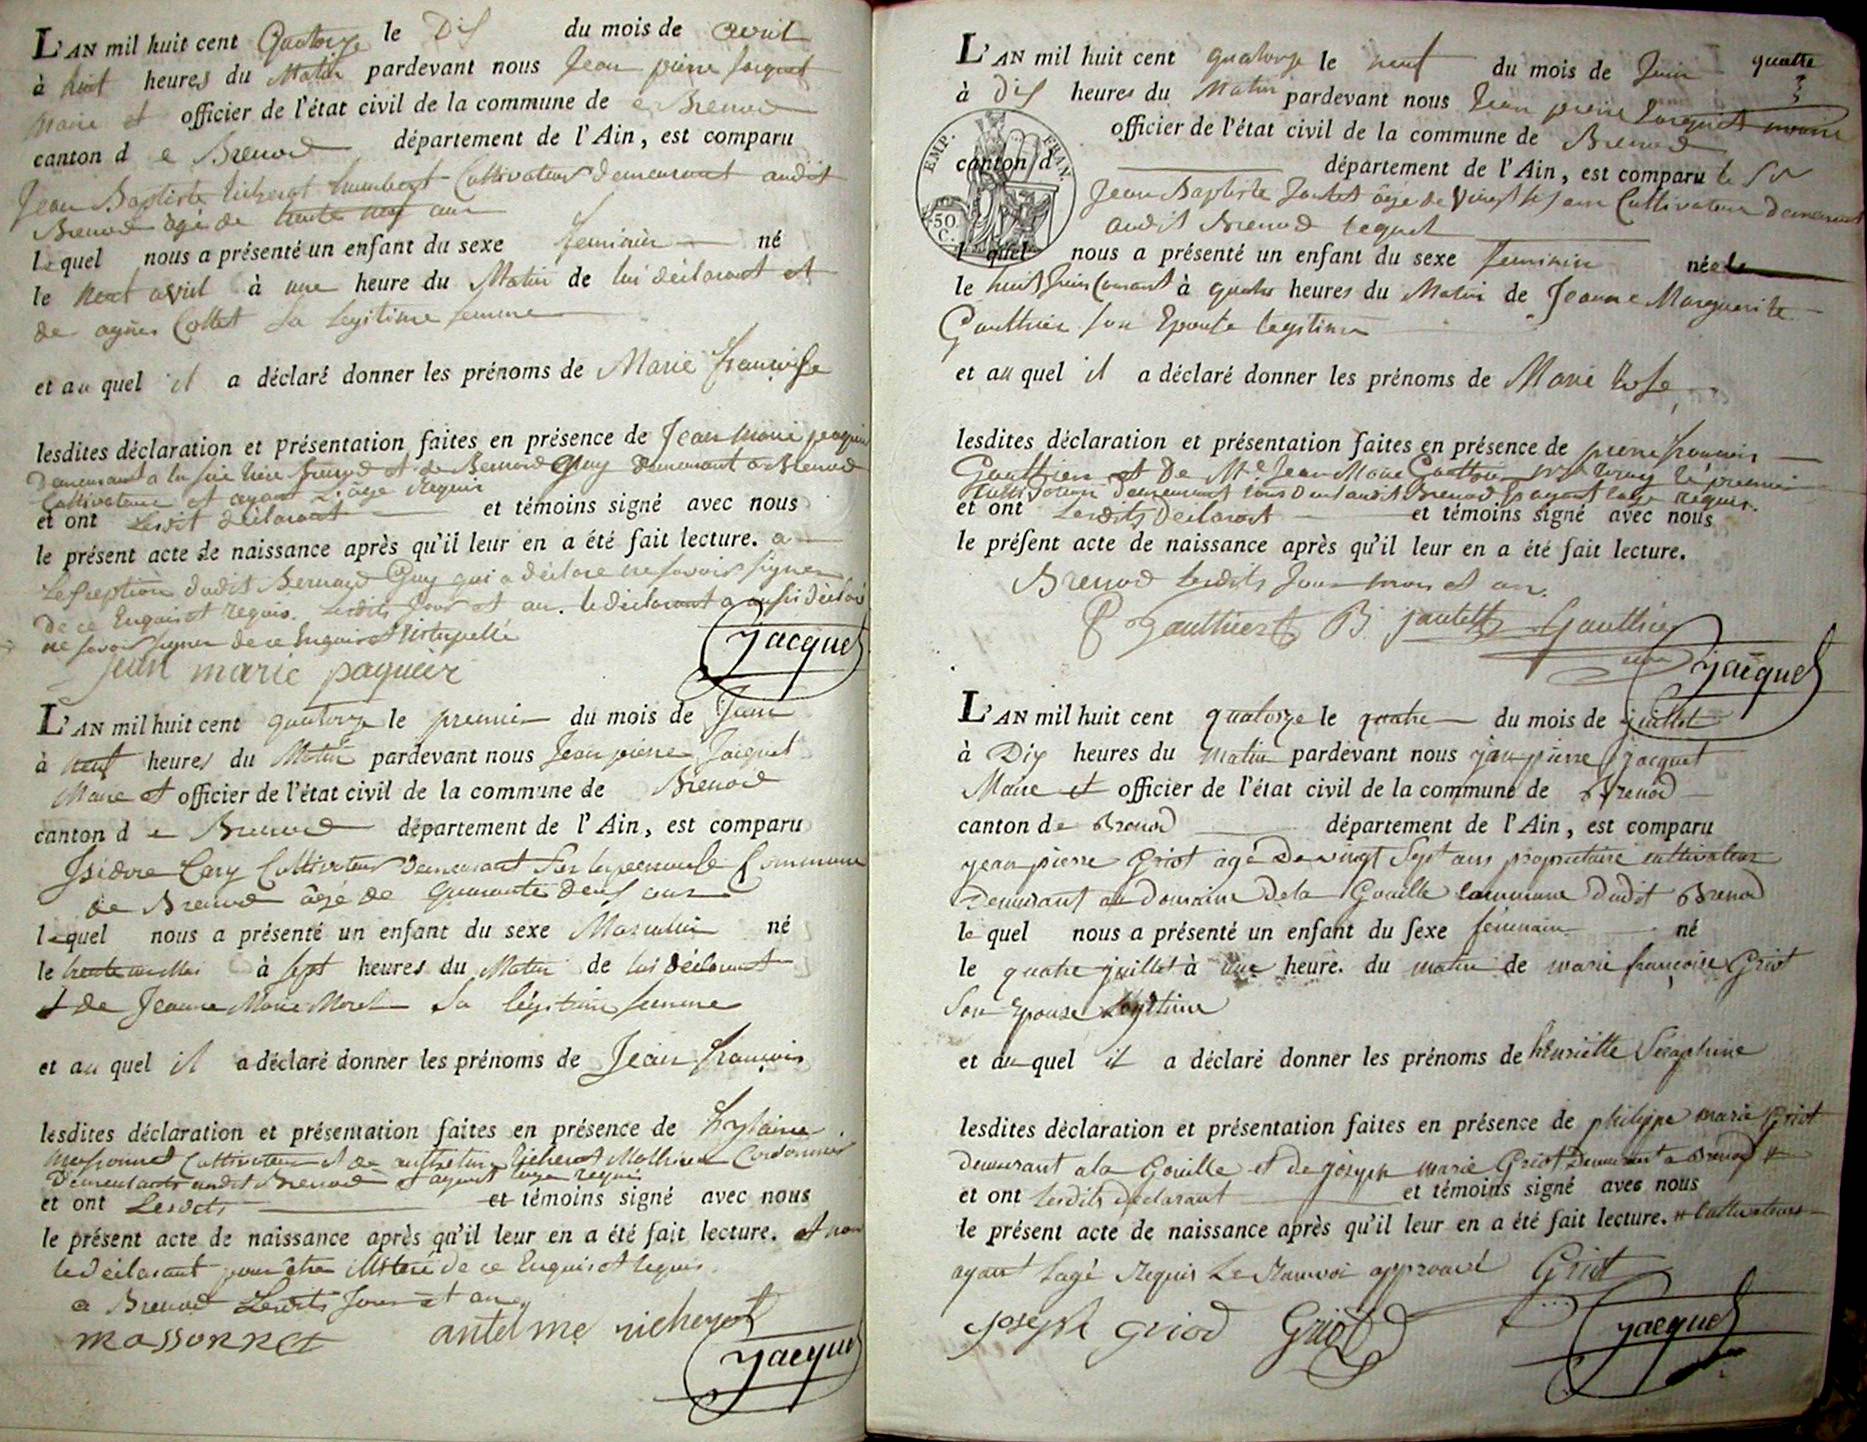 L'AN mil huit cent Quatorze le Dix du mois de avril
à huit heures du Matin pardevant nous Jean pierre Jacquet
Maire et officier de l'état civil de la commune de Brenod
canton d e Brenod département de l'Ain, est comparu
Jean Baptiste Richerot humbert Cultivateur demeurant audit
Brenod âgé de trente neuf ans
Lequel nous a présenté un enfant du sexe feminin né
le avril à une heure du Matin de lui déclarant et
de agnès Collet sa legitime femme
et au quel il a déclaré donner les prénoms de Marie françoise
lesdites déclaration et présentation faites en présence de Jean Marie
Demeurant a la Brenod et de Bernard Guy demeurant a Brenod
Cultivateurs et ayant L'âge Requis
et ont Ledit déclarant et témoins signé avec nous
le présent acte de naissance après qu'il leur en a été fait lecture. a
Lexception dudit Bernard Guy qui a déclaré ne savoir signer
De ce Enquis et requis. Lesdits Jour et an. le déclarant a aussi déclaré
ne savoir signer de ce Enquis et Interpellé
jean marie paquier Jacquet
L'AN mil huit cent quatorze le premier du mois de Juin
à neuf heures du Matin pardevant nous Jean pierre Jacquet
Maire et officier de l'état civil de la commune de Brenod
canton d e Brenod département de l'Ain, est comparu
Isidore Cultivateur Demeurant Sur Commune
de Brenod âgé de quarante deux ans
lequel nous a présenté un enfant du sexe Masculin né
le trente un Mai à sept heures du Matin de lui déclarant
et de Jeanne Marie Morel Sa légitime femme
et au quel il a déclaré donner les prénoms de Jean françois
lesdites déclaration et présentation faites en présence de
Massonnet Cultivateur et de Richerot Cordonnier
Demeurants audit Brenod et ayant lage requis
et ont Lesdits et témoins signé avec nous
le présent acte de naissance après qu'il leur en a été fait lecture. et non
le déclarant pour être illiteré de ce Enquis et requis.
a Brenod Lesdits Jour et an
massonnet antelme richerot
Jacquet
L'AN mil huit cent quatorze le neuf du mois de Juin quatre
à dix heures du Matin pardevant nous Jean pierre Jacquet maire
officier de l'état civil de la commune de Brenod
EMP. FRAN.
50 C.
canton d département de l'Ain, est comparu le Sr
Jean Baptiste Jantet âgé de Vingt six ans Cultivateur demeurant
audit Brenod lequel
l quel nous a présenté un enfant du sexe feminin née le
le huit Juin Courant à quatre heures du Matin de Jeanne Marguerite
Gauthier son Epouse legitime
et au quel il a déclaré donner les prénoms de Marie Rose
lesdites déclaration et présentation faites en présence de pierre francois
Gauthier et De Mr Jean Marie Gauthier le premier
demeurant tous deux audit Brenod ayant lage requis.
et ont Lesdits Déclarant et témoins signé avec nous
le présent acte de naissance après qu'il leur en a été fait lecture.
Brenod Lesdits Jour mois et an.
P Gauthier B jantet Gauthier
Jacquet
L'AN mil huit cent quatorze le quatre du mois de juillet
à Dix heures du matin pardevant nous jean pierre jacquet
Maire et officier de l'état civil de la commune de Brenod
canton de Brenod département de l'Ain, est comparu
jean pierre Griot agé De vingt Sept ans propriétaire cultivateur
Demeurant au Domaine Dela Gouille commune Dudit Brenod
le quel nous a présenté un enfant du sexe féminin né
le quatre juillet à une heure. du matin de marie françoise Griot
Son Epouse Legitime
et au quel il a déclaré donner les prénoms de henriette Séraphine
lesdites déclaration et présentation faites en présence de philippe marie Griot
demeurant a la Gouille et de joseph marie Griot Demeurant a Brenod #
et ont lesdits declarant et témoins signé avec nous
le présent acte de naissance après qu'il leur en a été fait lecture. # Cultivateurs
ayant Lagé Requis Le Renvoi approuvé Griot
joseph Griod Griot Jacquet